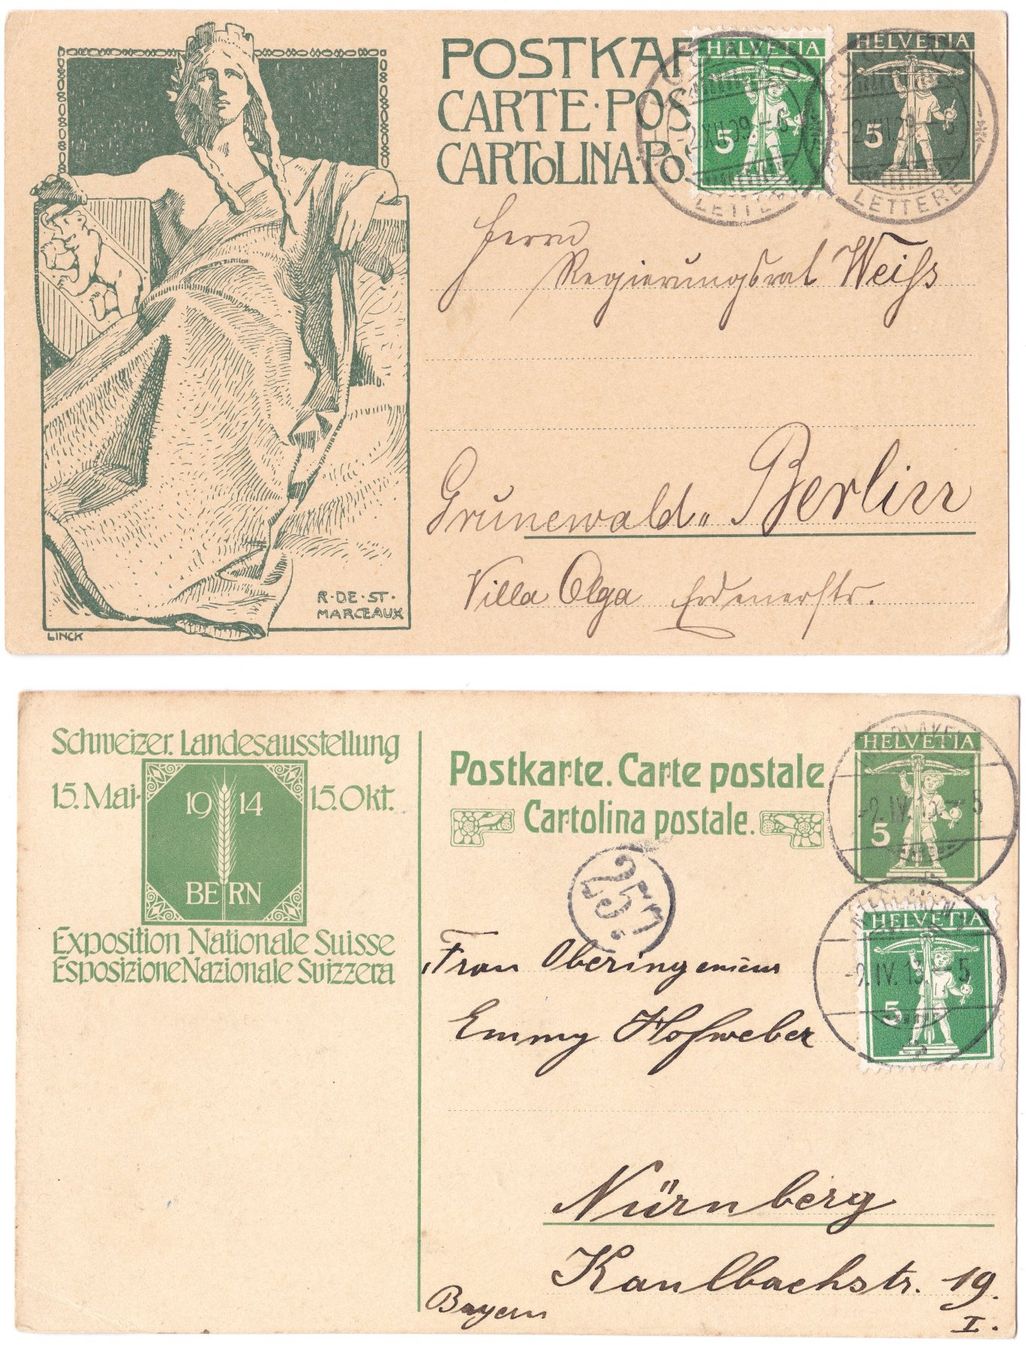 POSTKAR
CARTE·POS
CARTOLINA PO
HELVETIA
5
HELVETIA
5
LETTERE
LETTERE
Herrn
Regierungsrat Weiss
Grunewald„ Berlin
Villa Olga Erdenerstr.
R·DE·ST·
MARCEAUX
LINCK
Schweizer. Landesausstellung
15. Mai- 15. Okt.
19 14
BE RN
Exposition Nationale Suisse
Esposizione Nazionale Svizzera
Postkarte. Carte postale
Cartolina postale.
HELVETIA
5
INTERLAKEN
HELVETIA
5
257.
Frau Oberingenieur
Emmy Hofweber
Nürnberg
Kaulbachstr. 19.
I.
Bayern